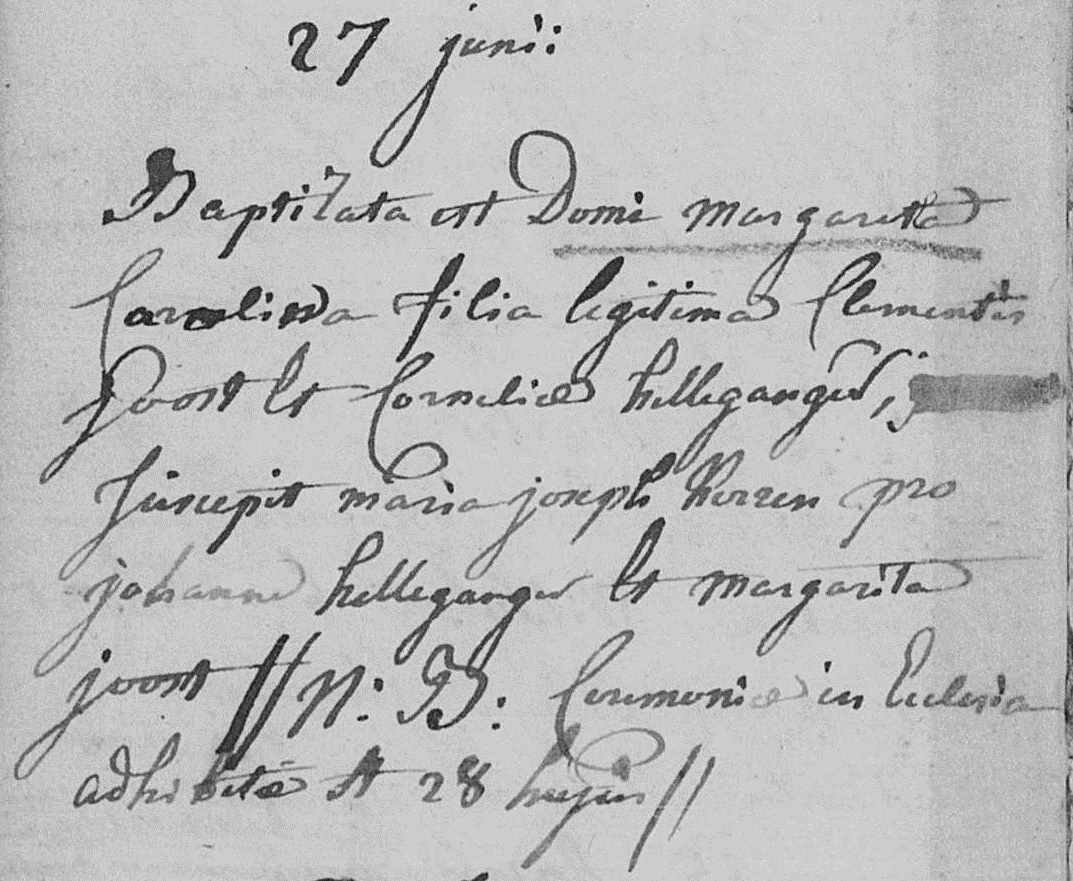 27 junii
Baptizata est Domi margareta
Carolina filia legitima Clementis
Joost Et Corneliæ helleganger,
Suscepit maria joseph Korren pro
johanne helleganger Et margarita
joost // N: B: Ceremoniæ in Ecclesia
adhibitæ st 28 hujus //